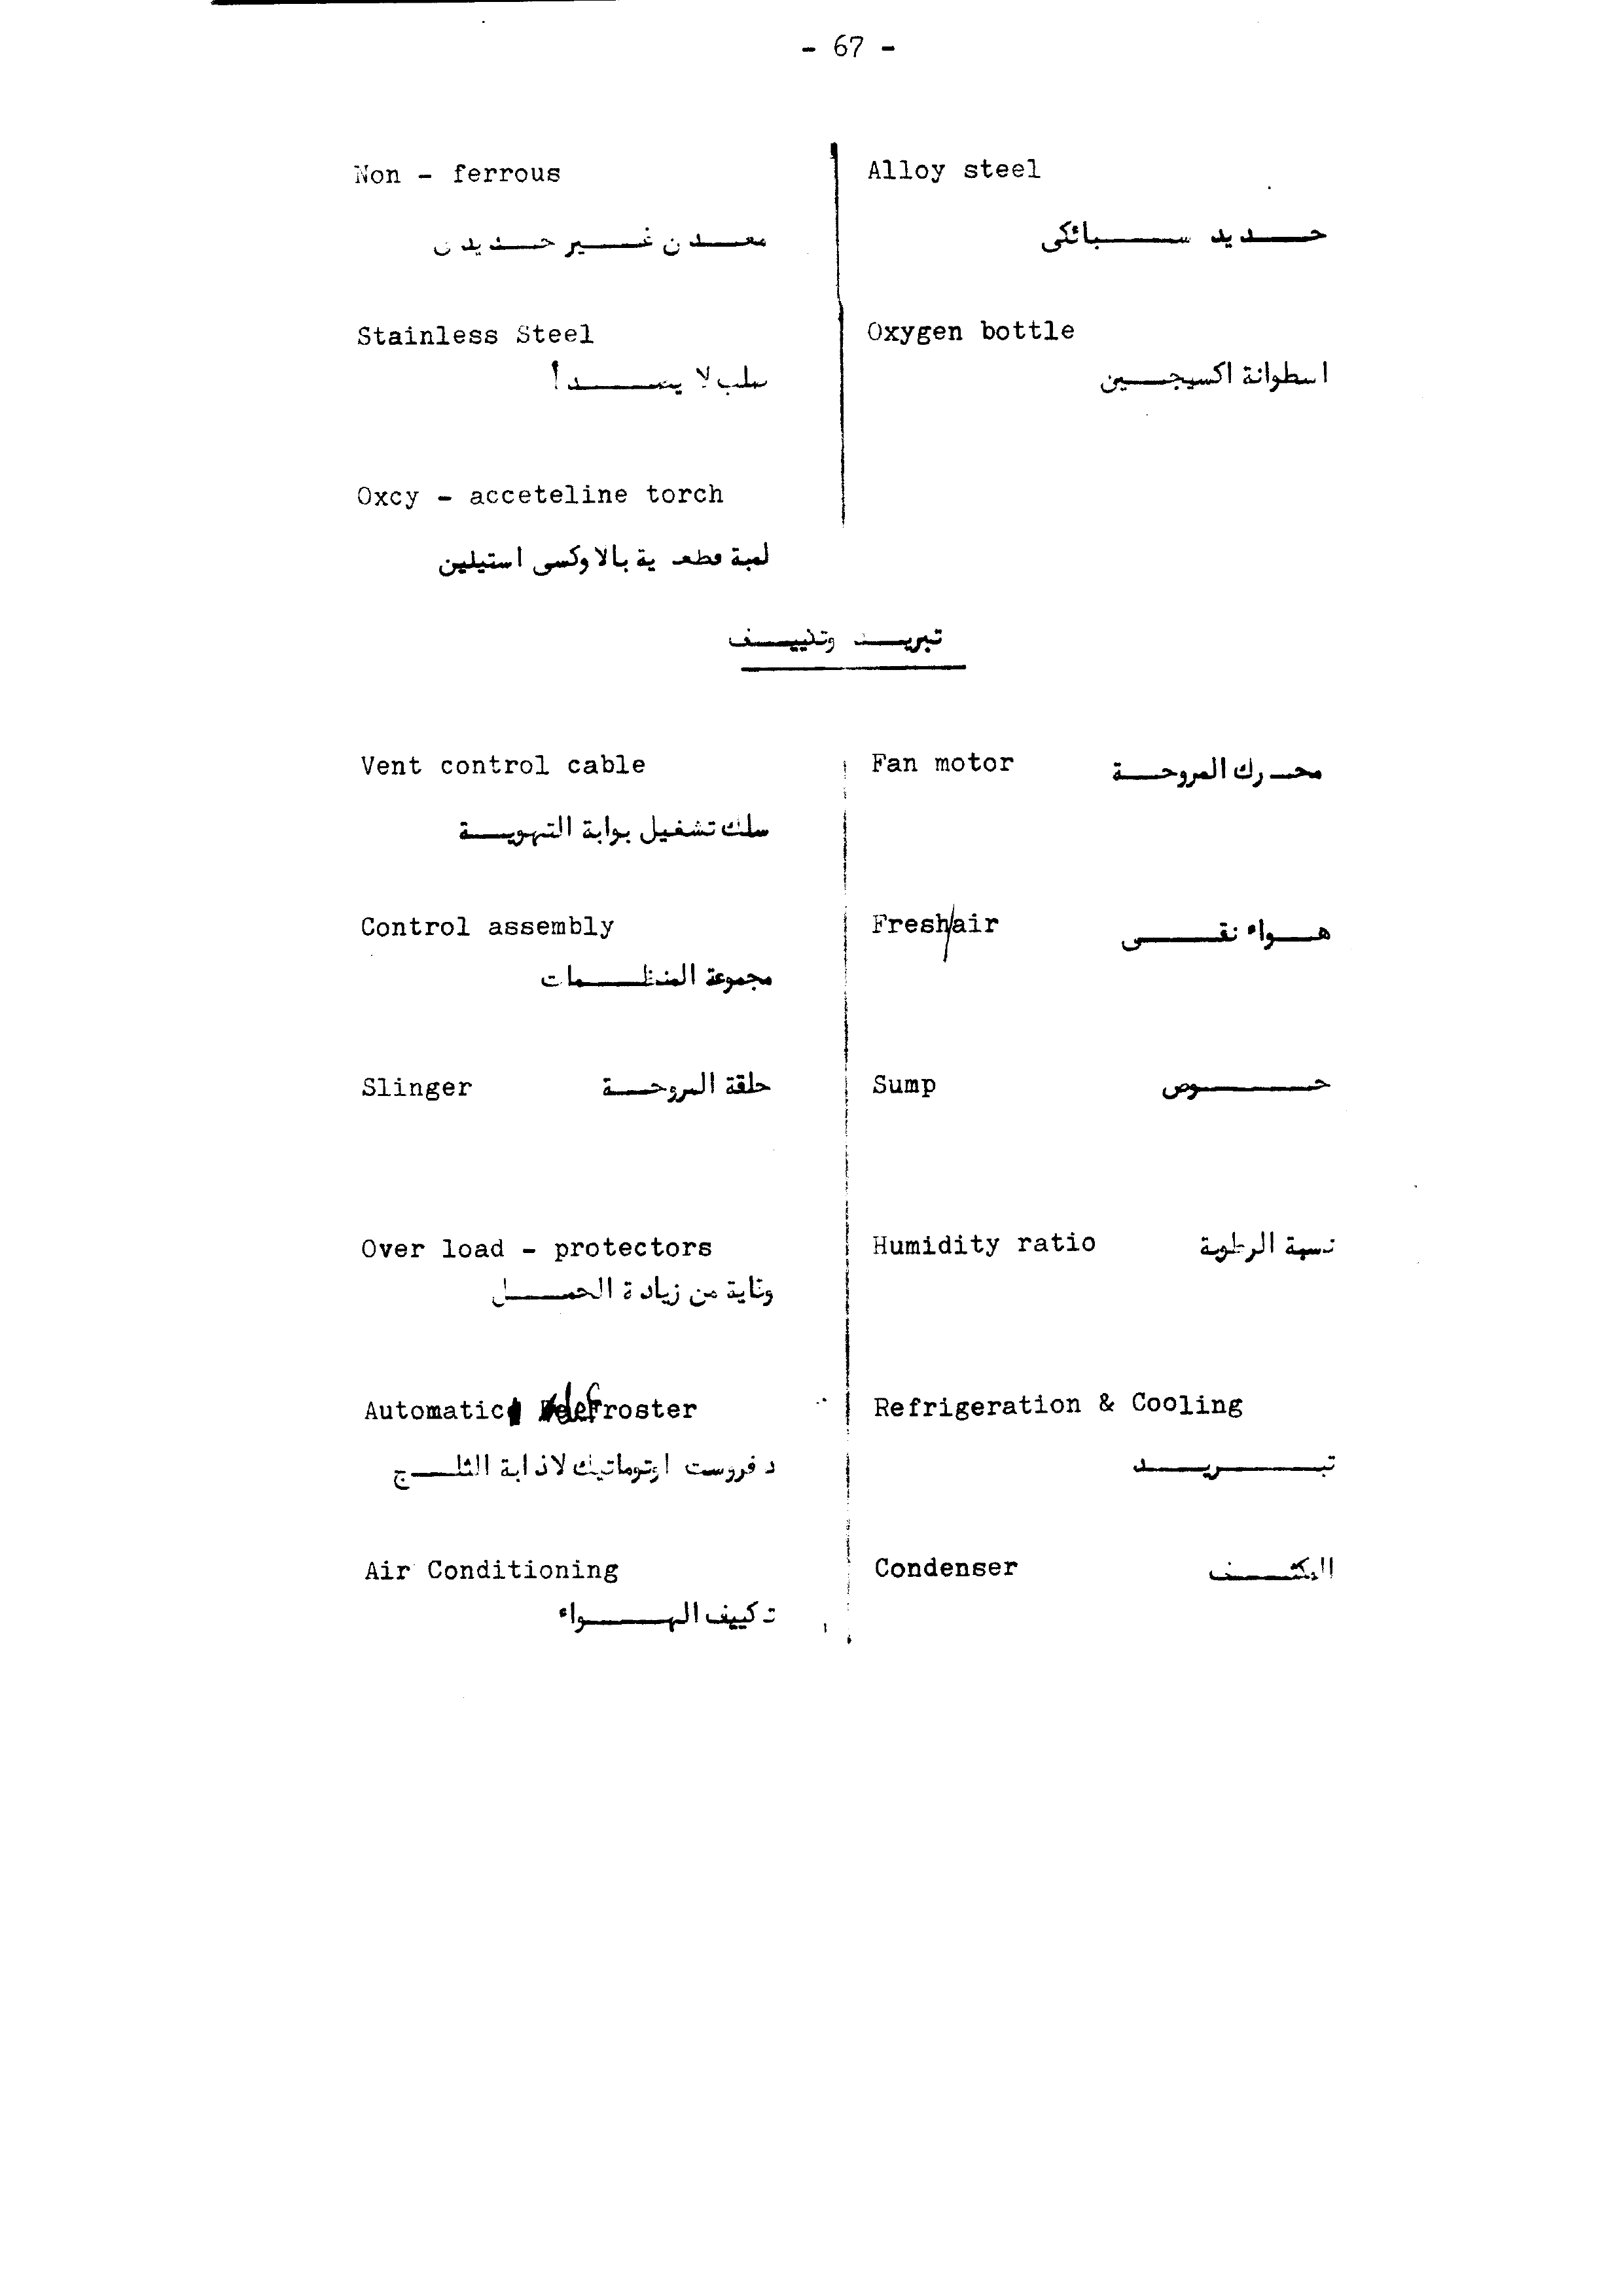 - 67 -
Non - ferrous
معدن غير حديدى
Stainless Steel
صلب لا يصدأ
Oxcy - acceteline torch
لمبة قطعية بالاوكسى استيلين
Alloy steel
حديد سبائكى
Oxygen bottle
اسطوانة اكسيجين
تبريد وتكييف
Vent control cable
سلك تشغيل بوابة التهوية
Control assembly
مجموعة المنظمات
Slinger حلقة المروحة
Over load - protectors
وقاية من زيادة الحمل
Automatic defroster
دفروست اوتوماتيك لاذابة الثلج
Air Conditioning
تكييف الهواء
Fan motor محرك المروحة
Fresh/air هواء نقى
Sump حوض
Humidity ratio نسبة الرطوبة
Refrigeration & Cooling
تبريد
Condenser المكثف